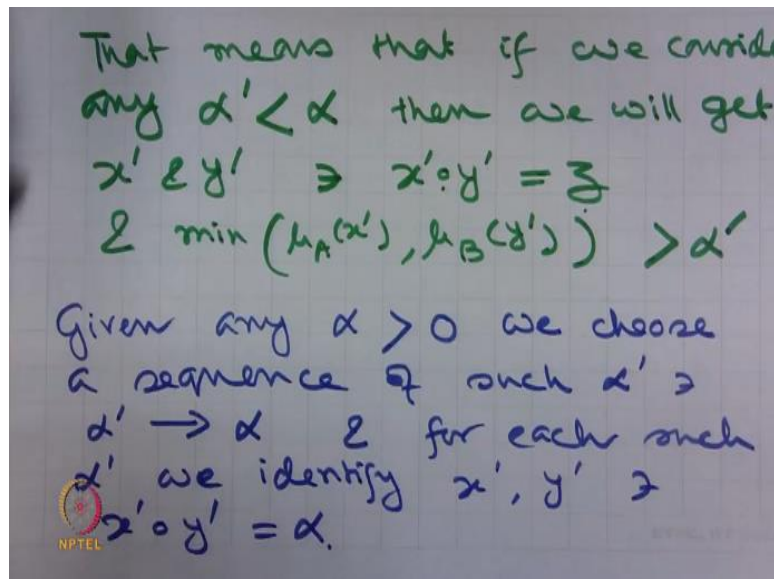 That means that if we conside
any α' < α then we will get
x' & y' ∋ x'∘y' = z
& min (μ_A(x'), μ_B(y')) > α'
Given any α > 0 we choose
a sequence of such α' ∋
α' → α & for each such
α' we identify x', y' ∋
x'∘y' = α.
NPTEL